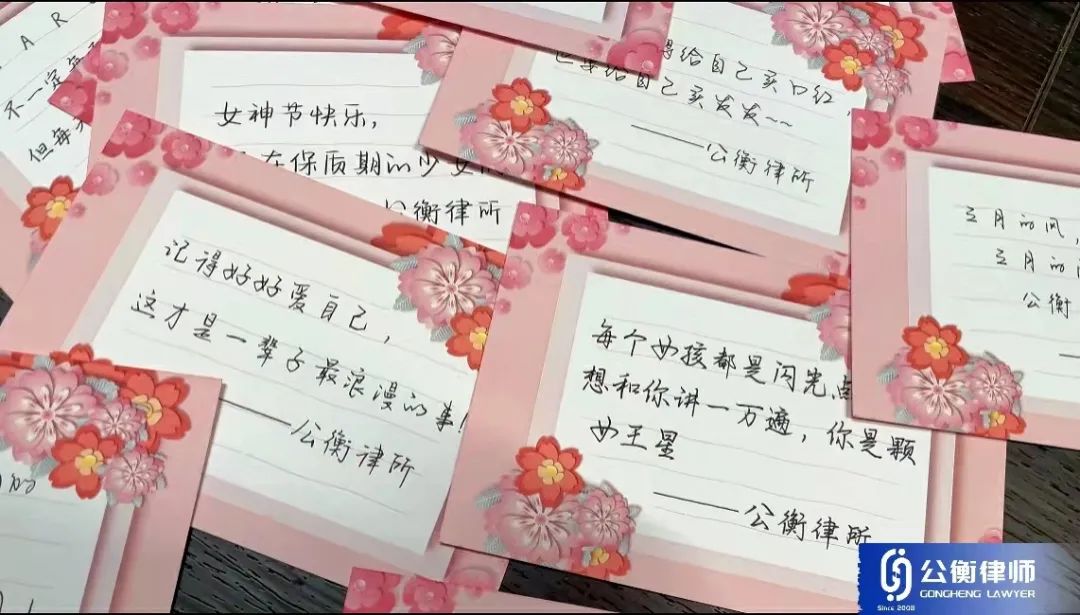 A R
不一定
但每天
女神节快乐，
在保质期的少女
公衡律所
得给自己买口红，
也要给自己买发发~~
——公衡律所
三月的风，
三月的
公衡
记得好好爱自己，
这才是一辈子最浪漫的事
——公衡律所
每个女孩都是闪光点
想和你讲一万遍，你是颗
女王星
——公衡律所
的
公衡律师
GONGHENG LAWYER
Since 2008